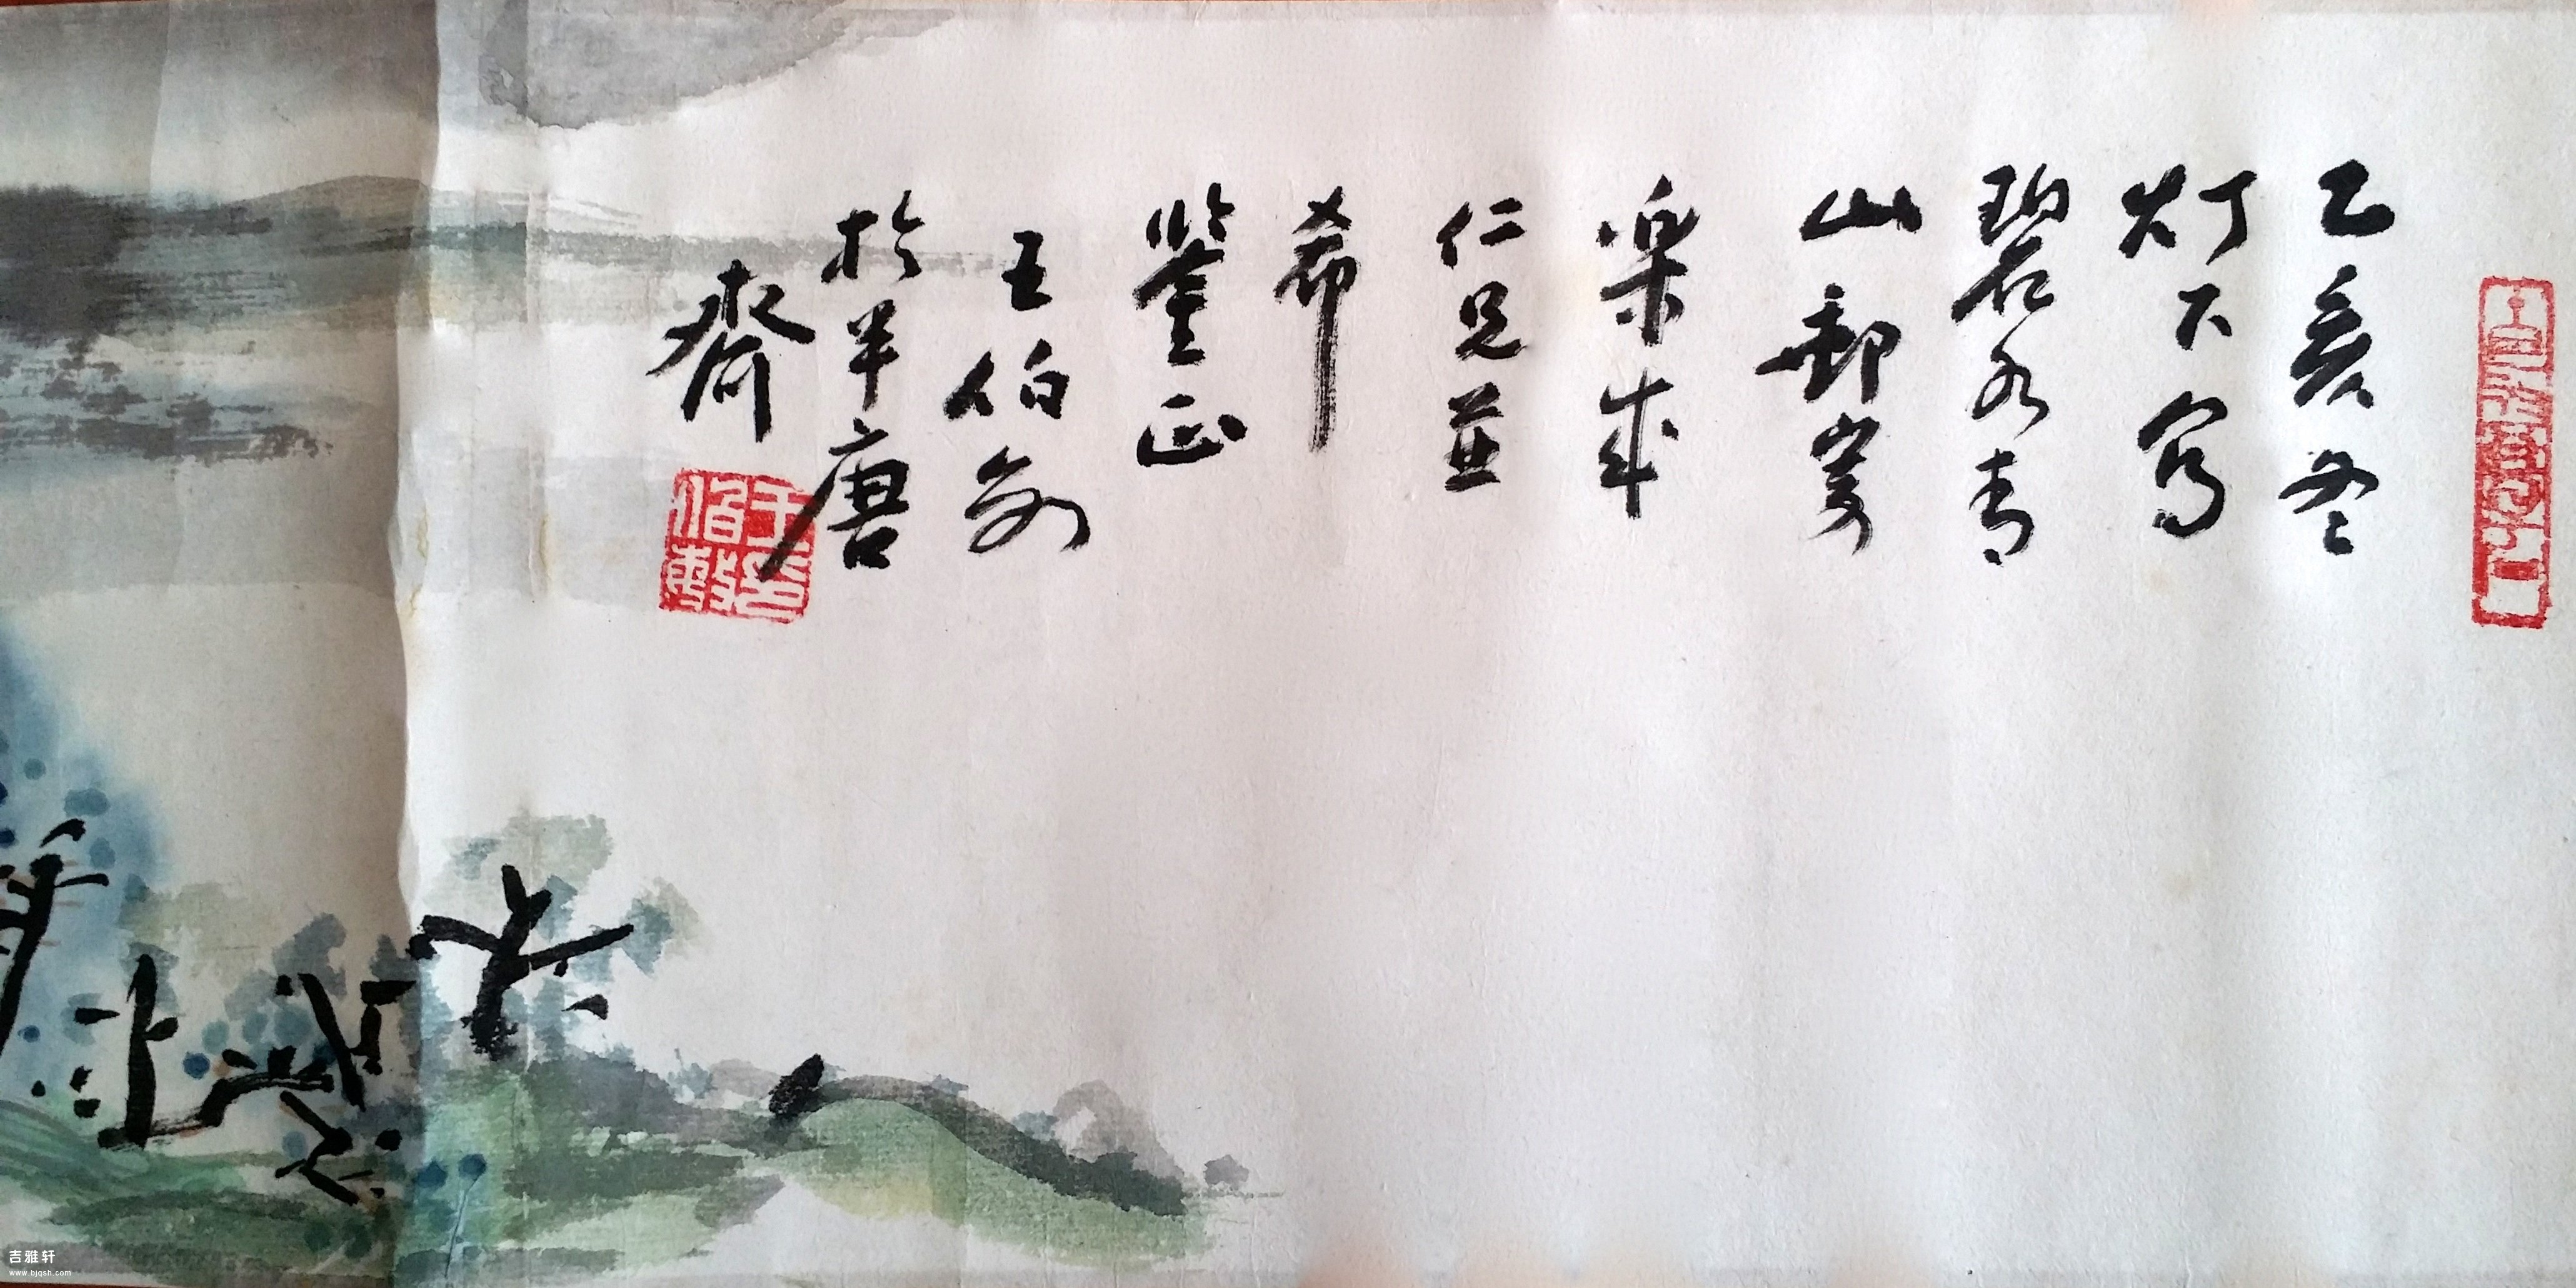 乙亥冬
灯下写
碧水青
山郵寄
楽成
仁兄並
希
鉴正
王伯敏
於半唐
斋
王伯敏
吉雅轩
www.bjqsh.com